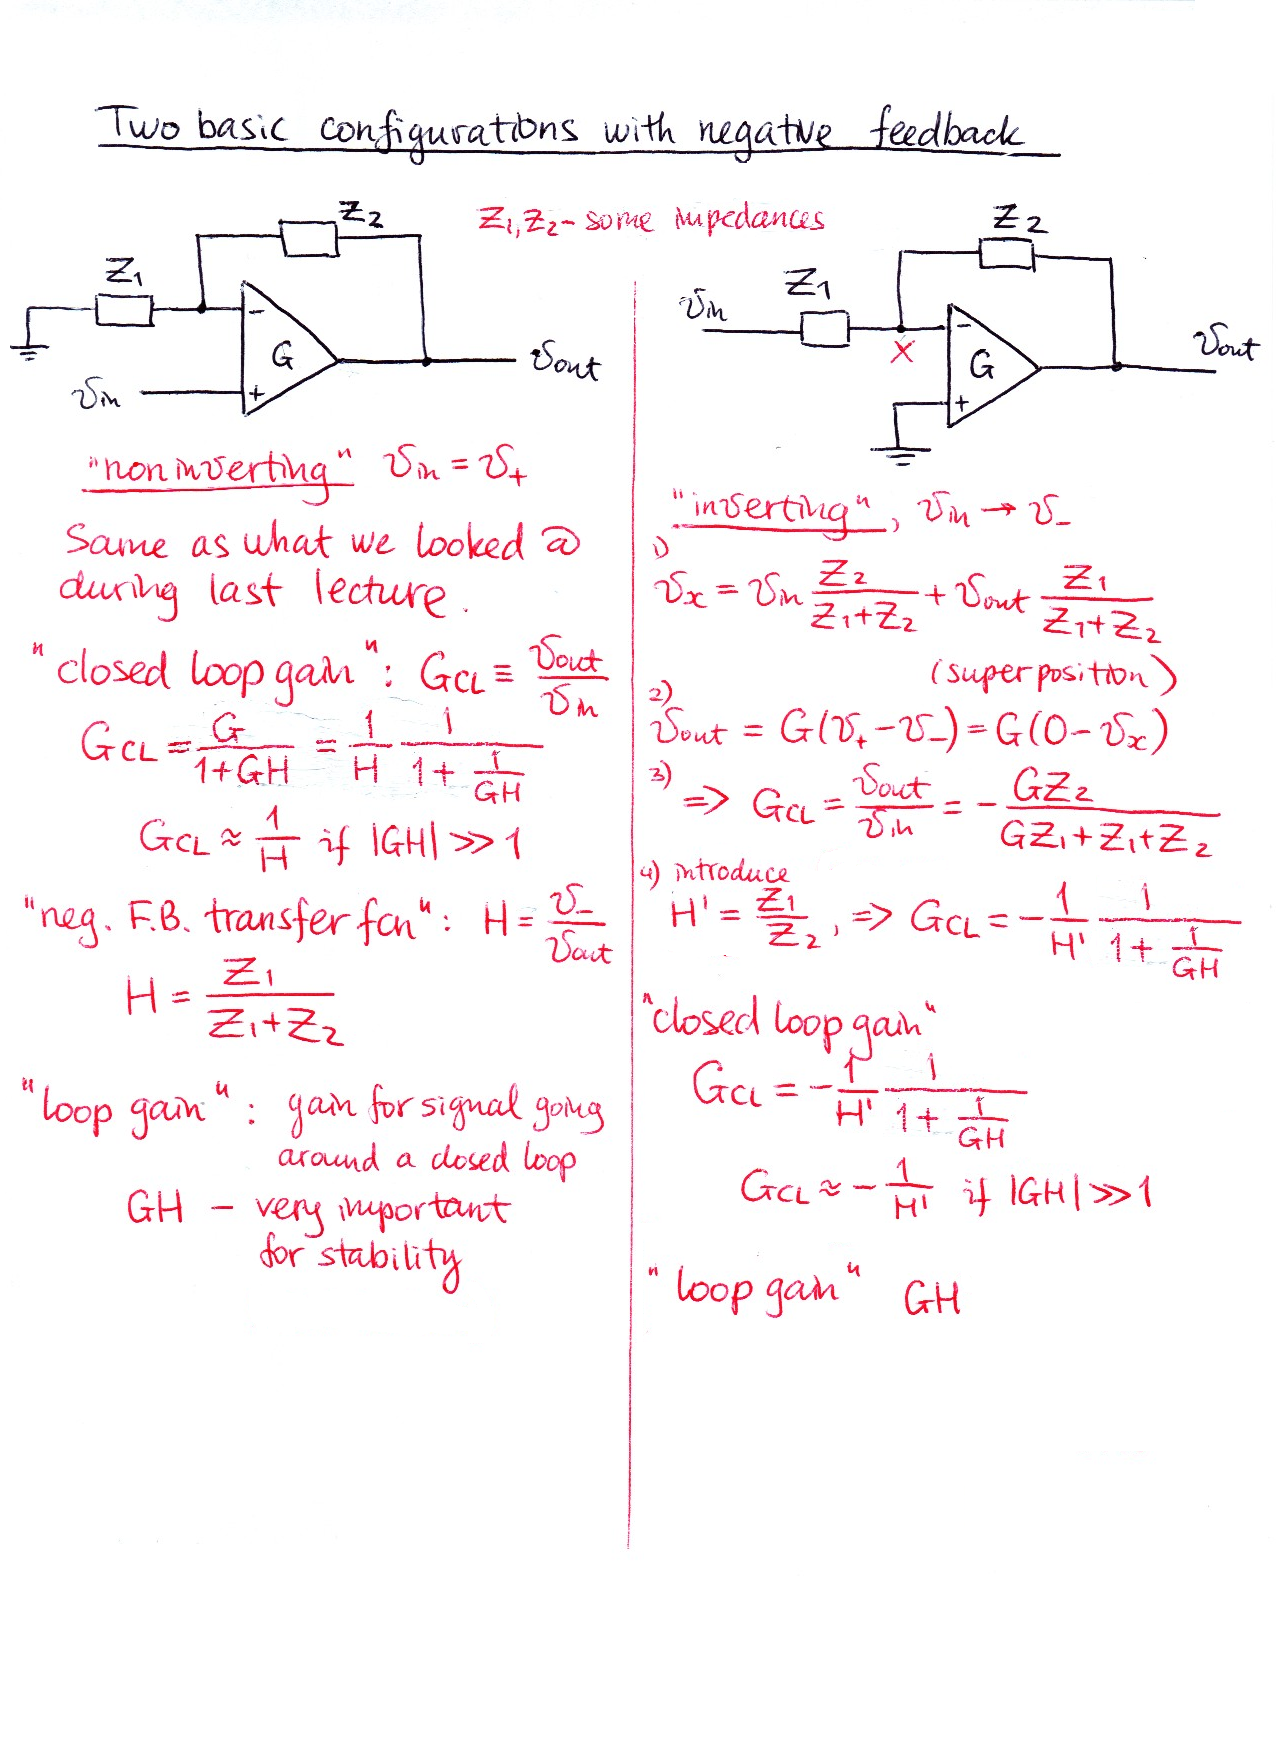 Two basic configurations with negative feedback
Z1, Z2 - some impedances
Z2
Z1
-
G
+
vin
vout
"noninverting" vin = v+
Same as what we looked @
during last lecture.
"closed loop gain": GCL ≡ vout/vin
GCL = G/(1+GH) = 1/H 1/(1+ 1/GH)
GCL ≈ 1/H if |GH| >> 1
"neg. F.B. transfer fcn": H = v-/vout
H = Z1/(Z1+Z2)
"loop gain": gain for signal going
around a closed loop
GH - very important
for stability
Z2
Z1
vin
x
-
G
+
vout
"inverting", vin → v-
1)
vx = vin Z2/(Z1+Z2) + vout Z1/(Z1+Z2)
(superposition)
2)
vout = G(v+ - v-) = G(0 - vx)
3)
=> GCL = vout/vin = - GZ2/(GZ1+Z1+Z2)
4) introduce
H' = Z1/Z2, => GCL = - 1/H' 1/(1+ 1/GH)
"closed loop gain"
GCL = - 1/H' 1/(1+ 1/GH)
GCL ≈ - 1/H' if |GH| >> 1
"loop gain" GH